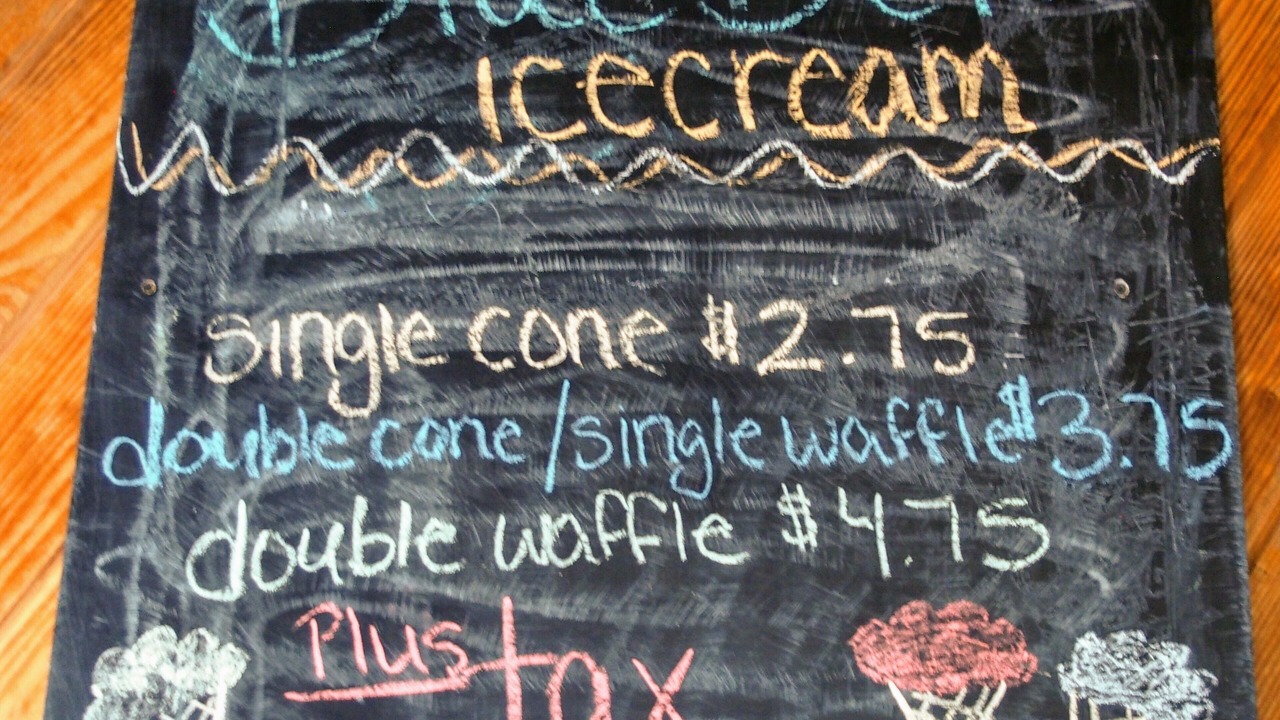 icecream
single cone $2.75
double cone/single waffle $3.75
double waffle $4.75
Plus tax